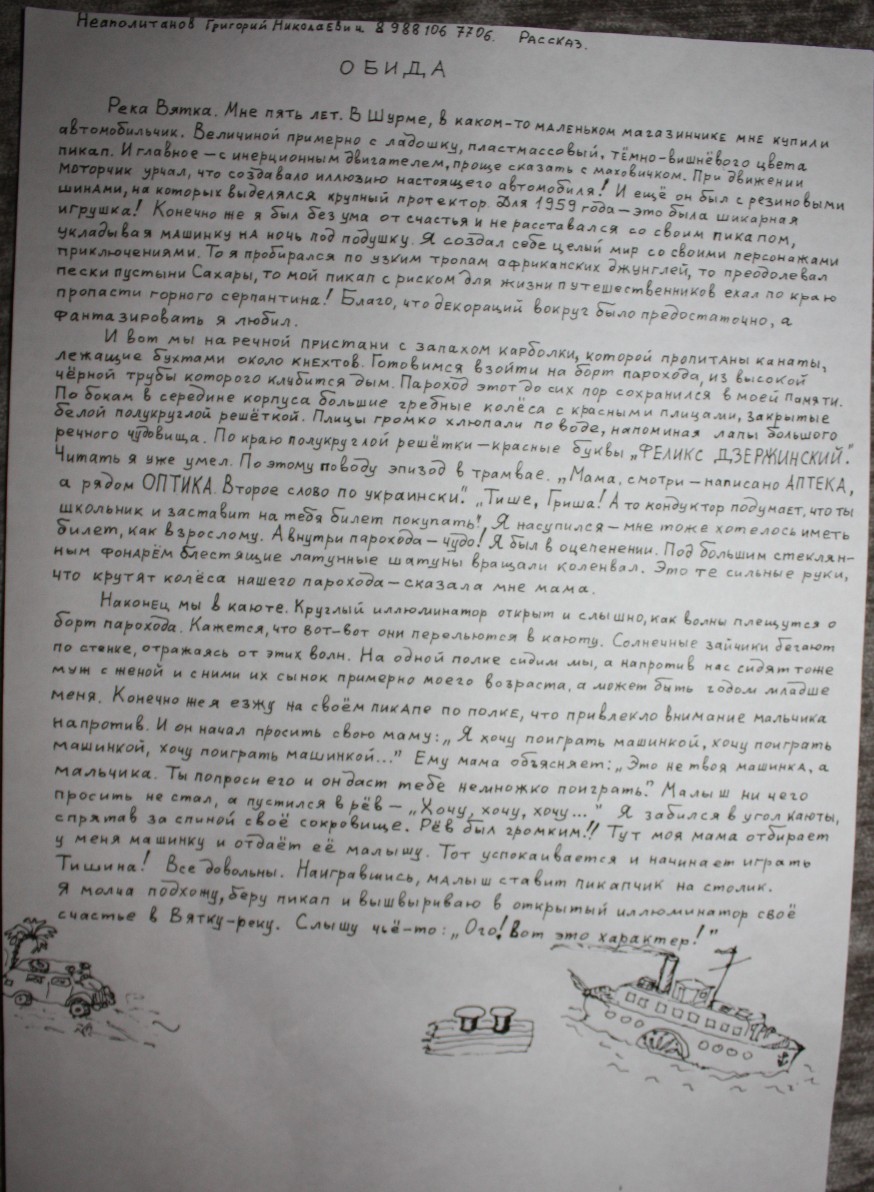 Неаполитанов Григорий Николаевич 8 988 106 7706. Рассказ.
ОБИДА
Река Вятка. Мне пять лет. В Шурме, в каком-то маленьком магазинчике мне купили
автомобильчик. Величиной примерно с ладошку, пластмассовый, тёмно-вишнёвого цвета
пикап. И главное – с инерционным двигателем, проще сказать с маховичком. При движении
моторчик урчал, что создавало иллюзию настоящего автомобиля! И ещё он был с резиновыми
шинами, на которых выделялся крупный протектор. Для 1959 года – это была шикарная
игрушка! Конечно же я был без ума от счастья и не расставался со своим пикапом,
укладывая машинку на ночь под подушку. Я создал себе целый мир со своими персонажами
приключениями. То я пробирался по узким тропам африканских джунглей, то преодолевал
пески пустыни Сахары, то мой пикап с риском для жизни путешественников ехал по краю
пропасти горного серпантина! Благо, что декораций вокруг было предостаточно, а
фантазировать я любил.
И вот мы на речной пристани с запахом карболки, которой пропитаны канаты,
лежащие бухтами около кнехтов. Готовимся взойти на борт парохода, из высокой
чёрной трубы которого клубится дым. Пароход этот до сих пор сохранился в моей памяти.
По бокам в середине корпуса большие гребные колёса с красными плицами, закрытые
белой полукруглой решёткой. Плицы громко хлюпали по воде, напоминая лапы большого
речного чудовища. По краю полукруглой решётки – красные буквы „ФЕЛИКС ДЗЕРЖИНСКИЙ".
Читать я уже умел. По этому поводу эпизод в трамвае. „Мама, смотри – написано АПТЕКА,
а рядом ОПТИКА. Второе слово по украински". „Тише, Гриша! А то кондуктор подумает, что ты
школьник и заставит на тебя билет покупать". Я насупился – мне тоже хотелось иметь
билет, как взрослому. А внутри парохода – чудо! Я был в оцепенении. Под большим стеклян-
ным фонарём блестящие латунные шатуны вращали коленвал. Это те сильные руки,
что крутят колёса нашего парохода – сказала мне мама.
Наконец мы в каюте. Круглый иллюминатор открыт и слышно, как волны плещутся о
борт парохода. Кажется, что вот-вот они перельются в каюту. Солнечные зайчики бегают
по стенке, отражаясь от этих волн. На одной полке сидим мы, а напротив нас сидят тоже
муж с женой и с ними их сынок примерно моего возраста, а может быть годом младше
меня. Конечно же я езжу на своём пикапе по полке, что привлекло внимание мальчика
напротив. И он начал просить свою маму: „Я хочу поиграть машинкой, хочу поиграть
машинкой, хочу поиграть машинкой..." Ему мама объясняет: „Это не твоя машинка, а
мальчика. Ты попроси его и он даст тебе немножко поиграть". Малыш ни чего
просить не стал, а пустился в рёв – „Хочу, хочу, хочу..." Я забился в угол каюты,
спрятав за спиной своё сокровище. Рёв был громким!! Тут моя мама отбирает
у меня машинку и отдаёт её малышу. Тот успокаивается и начинает играть
Тишина! Все довольны. Наигравшись, малыш ставит пикапчик на столик.
Я молча подхожу, беру пикап и вышвыриваю в открытый иллюминатор своё
счастье в Вятку-реку. Слышу чьё-то: „Ого! Вот это характер!"